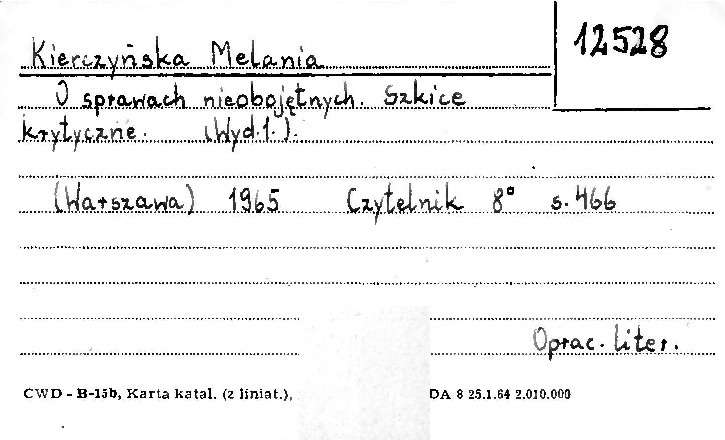 12528
Kierczyńska Melania
O sprawach nieobojętnych. Szkice
krytyczne. (Wyd. 1.).
(Warszawa) 1965 Czytelnik 8° s. 466
Oprac. liter.
CWD - B-15b, Karta katal. (z liniat.), DA 8 25.1.64 2.010.000